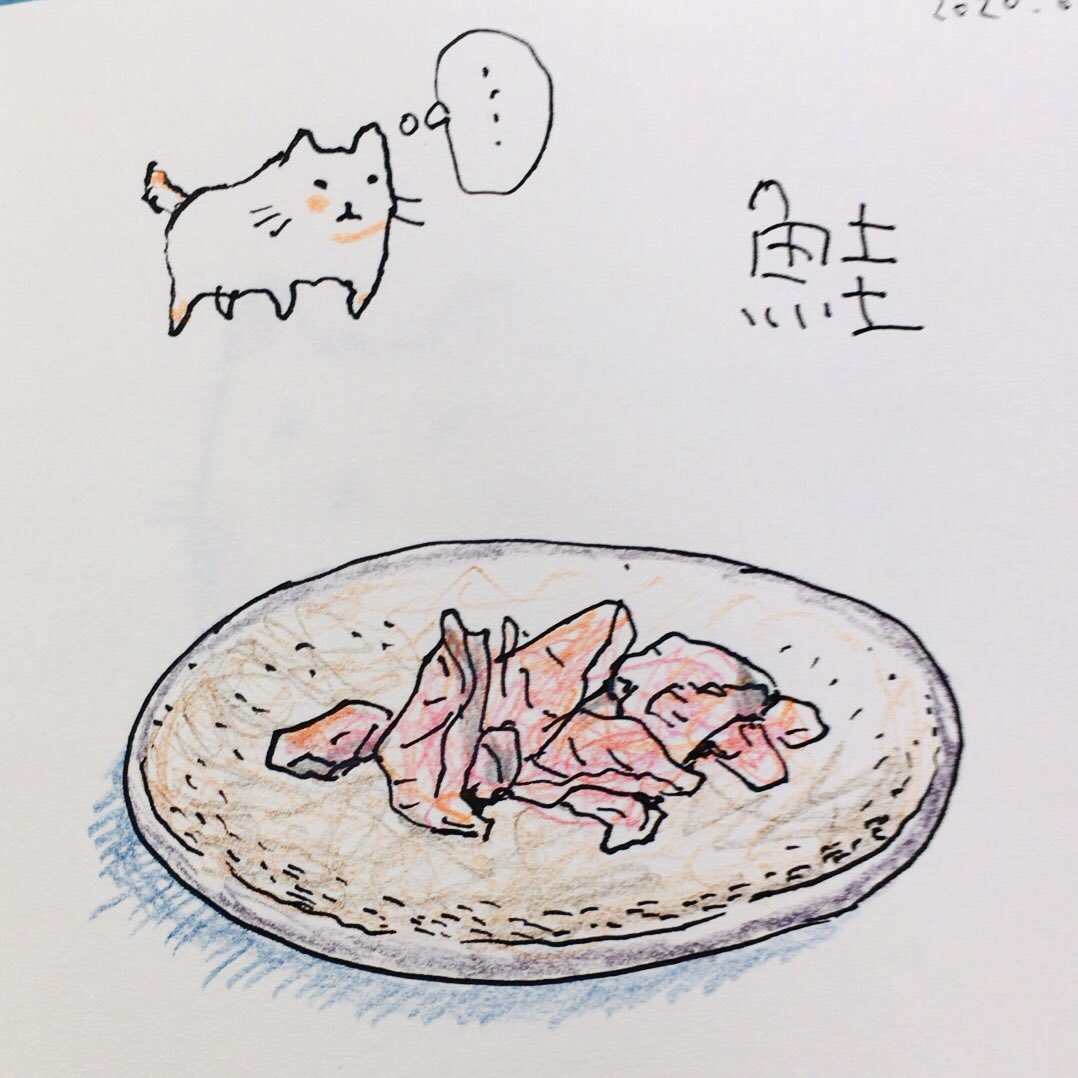 2020.
鮭